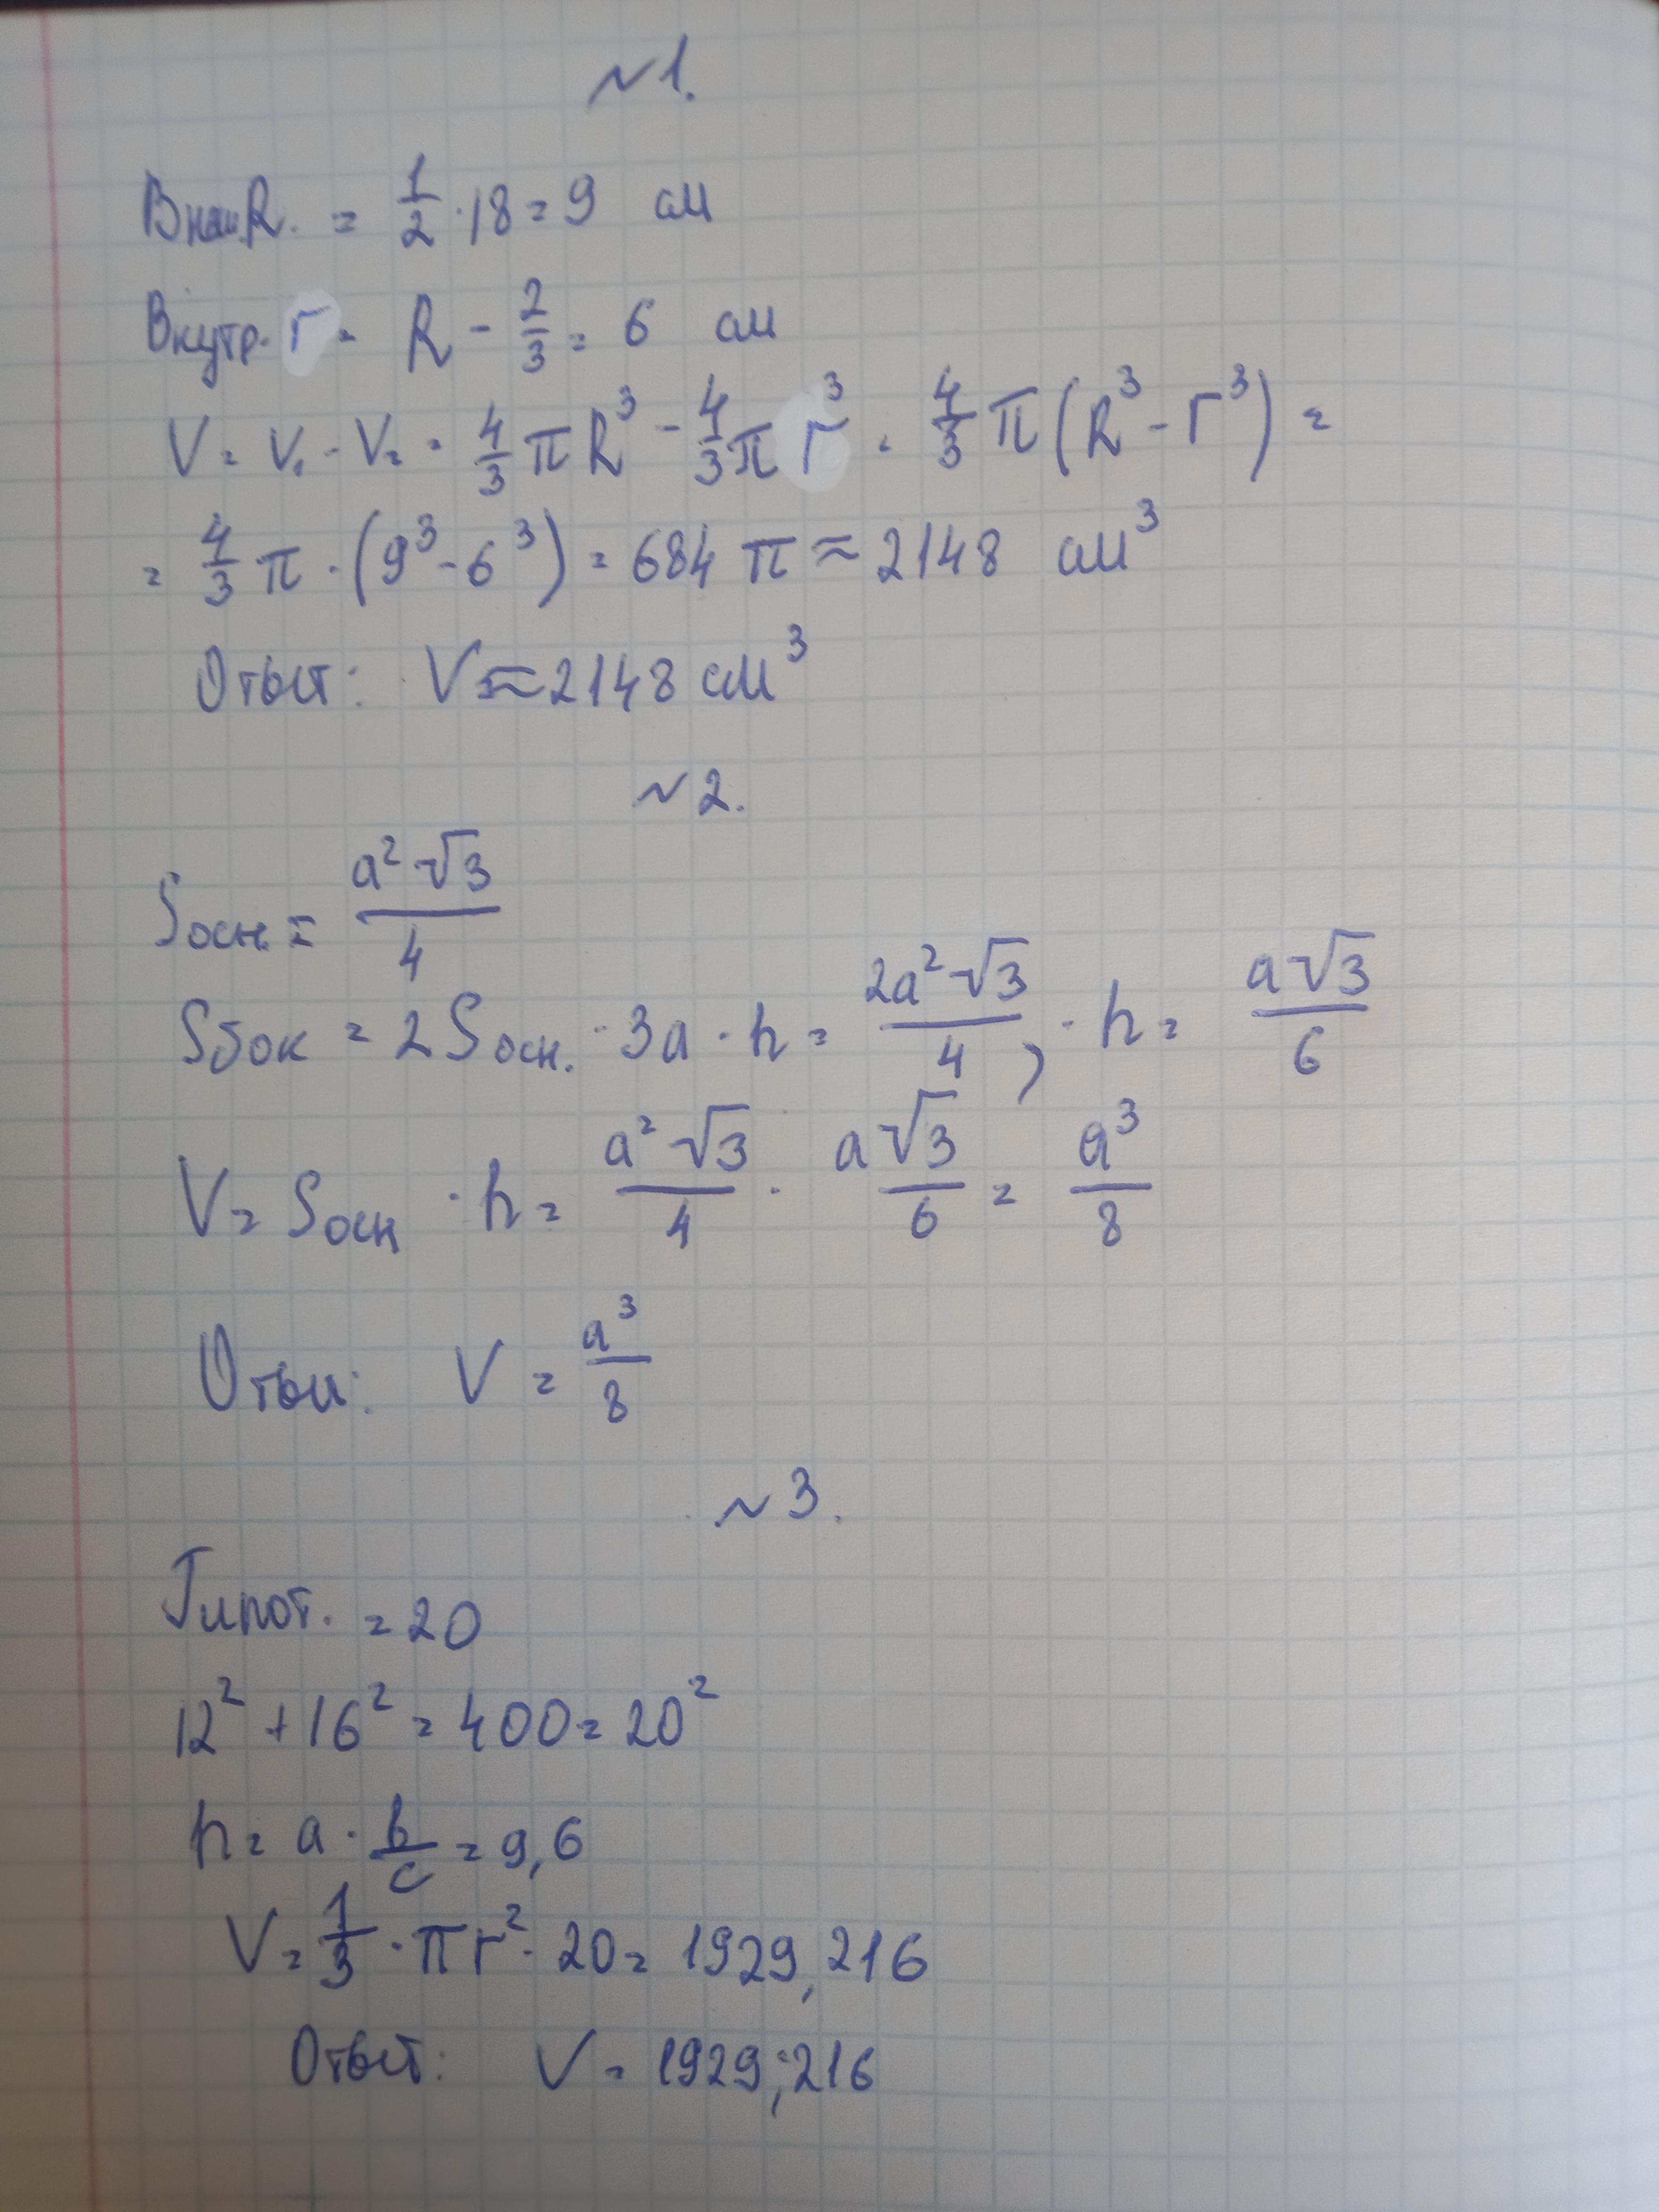 №1.
Внеш.R. = 1/2 · 18 = 9 см
Внутр. r = R - 2/3 = 6 см
V = V₁ - V₂ = 4/3 π R³ - 4/3 π r³ = 4/3 π (R³ - r³) =
= 4/3 π · (9³ - 6³) = 684 π ≈ 2148 см³
Ответ: V ≈ 2148 см³
№2.
Sосн. = a² √3 / 4
Sбок = 2Sосн. · 3a · h = 2a² √3 / 4, · h = a√3 / 6
V = Sосн · h = a² √3 / 4 · a√3 / 6 = a³ / 8
Ответ: V = a³ / 8
№3.
Гипот. = 20
12² + 16² = 400 = 20²
h = a · b/c = 9,6
V = 1/3 · π r² · 20 = 1929,216
Ответ: V = 1929,216